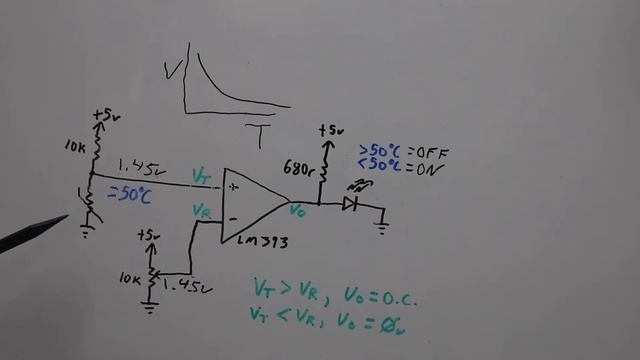 V
T
+5v
10K
1.45v
=50°C
VT
VR
+
-
LM393
VO
+5v
680r
>50°C = OFF
<50°C = ON
+5v
10K
1.45v
VT > VR, VO = O.C.
VT < VR, VO = 0v